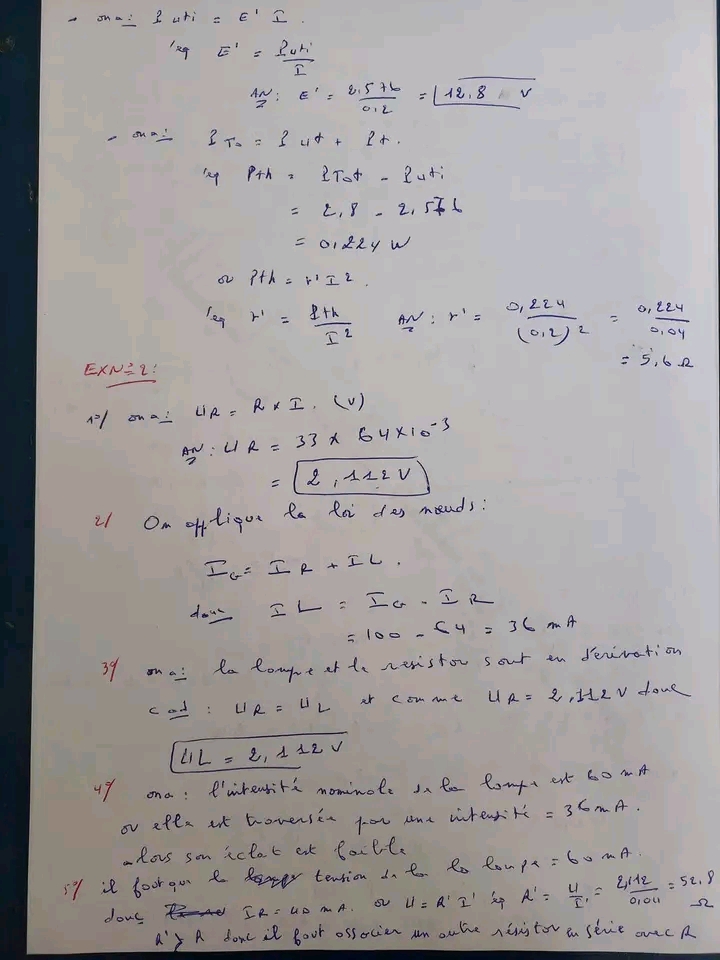 → on a: Puti = E' I.
éq E' = Puti / I
AN: E' = 2,576 / 0,2 = 12,8 V
- on a: PTo = Put + Pt.
éq Pth = PTot - Puti
= 2,8 - 2,576
= 0,224 W
or Pth = r' I².
éq r' = Pth / I² AN: r' = 0,224 / (0,2)² = 0,224 / 0,04
= 5,6 Ω
EXN=2:
1°/ on a: UR = R x I. (V)
AN: UR = 33 x 64x10⁻³
= 2,112 V
2/ On applique la loi des nœuds:
IG = IR + IL.
donc IL = IG - IR
= 100 - 64 = 36 mA
3°/ on a: la lampe et le resistor sont en dérivation
cad: UR = UL et comme UR = 2,112 V donc
UL = 2,112 V
4°/ on a: l'intensité nominale de la lampe est 60 mA
or elle est traversée par une intensité = 36 mA.
alors son éclat est faible
5°/ il faut que la tension de la la lampe = 60 mA.
donc IR = 40 mA. or U = R' I' éq R' = U / I' = 2,112 / 0,04 = 52,8 Ω
R' > R donc il faut associer un autre résistor en série avec R